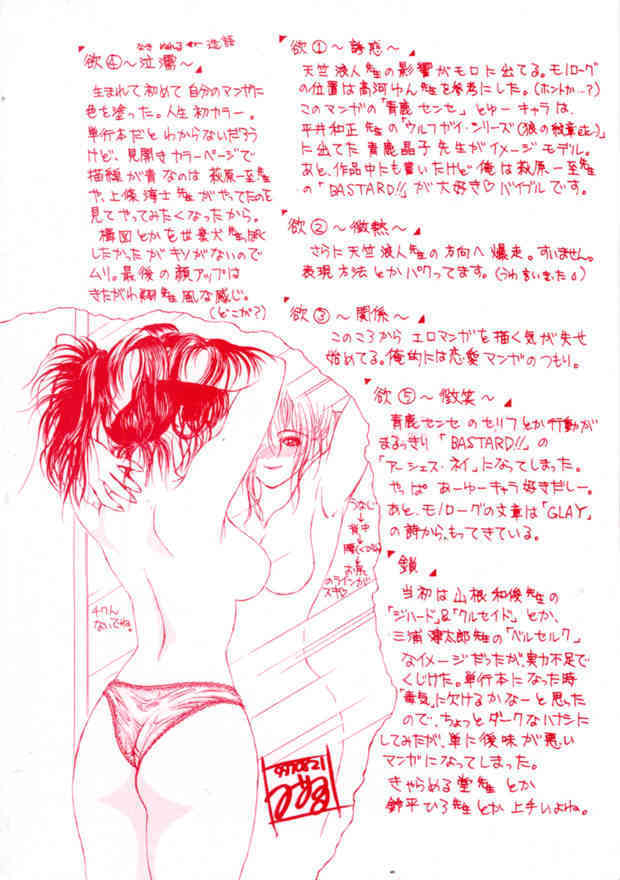 欲①〜誘惑〜
天竺浪人先生の影響がモロに出てる。モノローグ
の位置は高河ゆん先生を参考にした。(ホントか…?)
このマンガの「青鹿センセ」とゆーキャラは、
平井和正先生の「ウルフガイ・シリーズ(狼の紋章etc)」
に出てた青鹿晶子先生がイメージモデル。
あと、作品中にも書いたけど俺は萩原一至先生
の「BASTARD!!」が大好き♡バイブルです。
欲②〜微熱〜
さらに天竺浪人先生の方向へ爆走。すいません。
表現方法とかパクってます。
欲③〜関係〜
このころからエロマンガを描く気が失せ
始めてる。俺的には恋愛マンガのつもり。
欲④〜泣濡〜
造語
生まれて初めて自分のマンガに
色を塗った。人生初カラー。
単行本だとわからないだろう
けど、見開きカラーページで
描線が青なのは萩原一至先生
や、上條淳士先生がやってたのを
見てやってみたくなったから。
構図とかを世棄犬先生っぽく
したかったがキソがないので
ムリ。最後の顔アップは
きたがわ翔先生風な感じ。
(どこが?)
欲⑤〜微笑〜
青鹿センセのセリフとか行動が
まるっきり「BASTARD!!」の
「アーシェス・ネイ」になってしまった。
やっぱあーゆーキャラ好きだしー。
あと、モノローグの文章は「GLAY」
の詩から、もってきている。
鎖
当初は山根和俊先生の
「ジハード」&「クルセイド」とか、
三浦建太郎先生の「ベルセルク」
なイメージだったが、実力不足で
くじけた。単行本になった時
「毒気」に欠けるかなーと思った
ので、ちょっとダークなハナシに
してみたが、単に後味が悪い
マンガになってしまった。
きゃらめる堂先生とか
鈴平ひろ先生とか上手いよね。
うなじ
↓
背中
↓
腰(くびれ)
↓
お尻
のラインが
スキ♡
チクん
ないでね。
970821